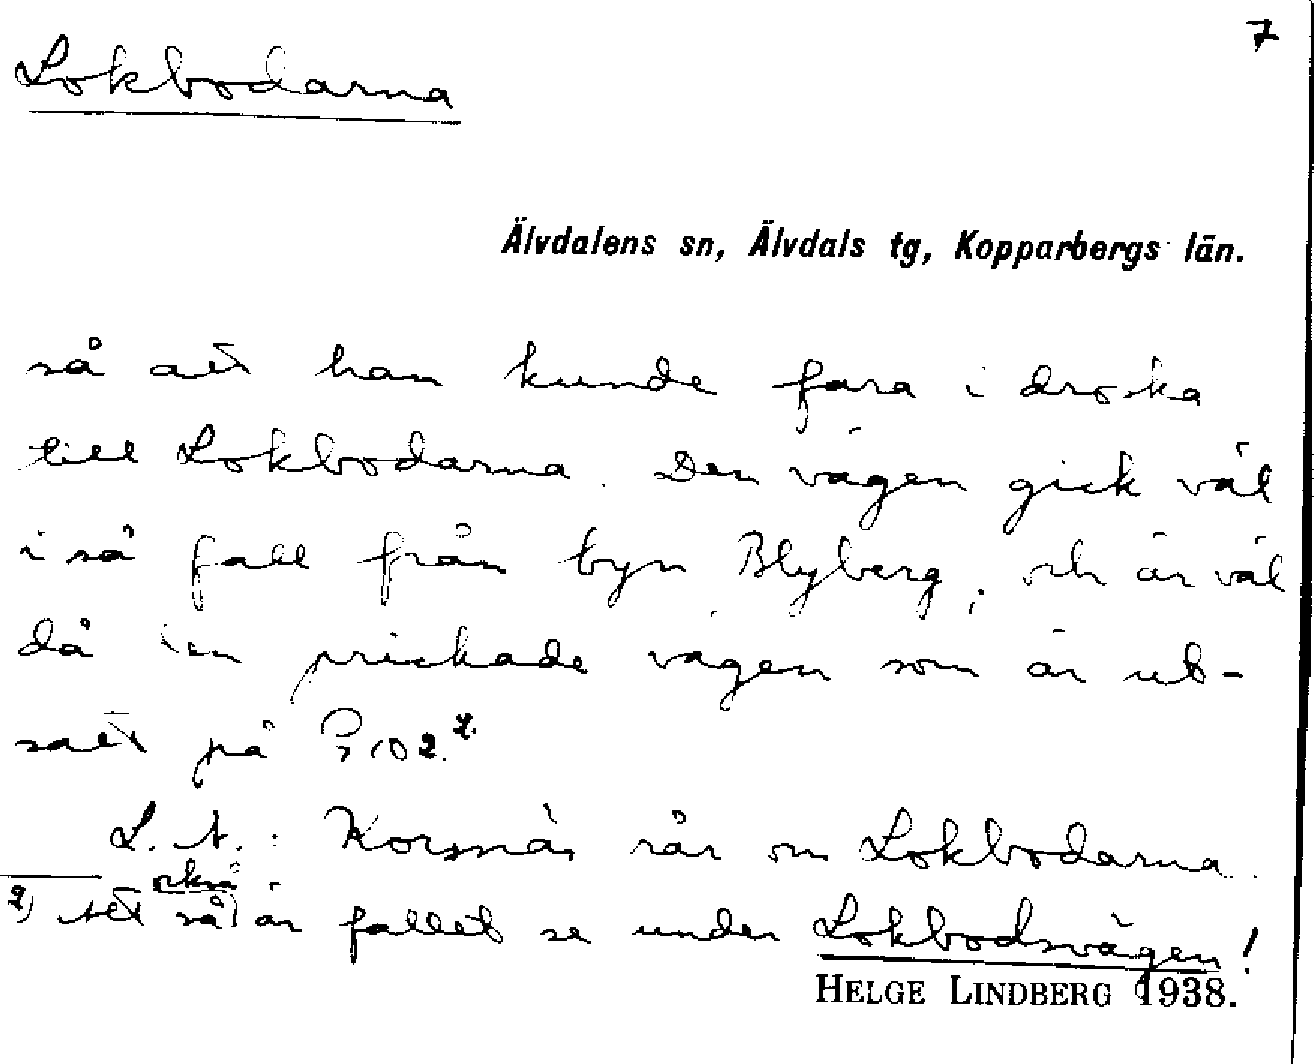 7
Lokbodarna
Älvdalens sn, Älvdals tg, Kopparbergs län.
så att han kunde fara i droska
till Lokbodarna. Den vägen gick väl
i så fall från byn Blyberg, och är väl
då den prickade vägen som är ut-
satt på 102.
L. A.: Korsnäs rår om Lokbodarna.
också
2) Att så är fallet se under Lokbodsvägen!
HELGE LINDBERG 1938.